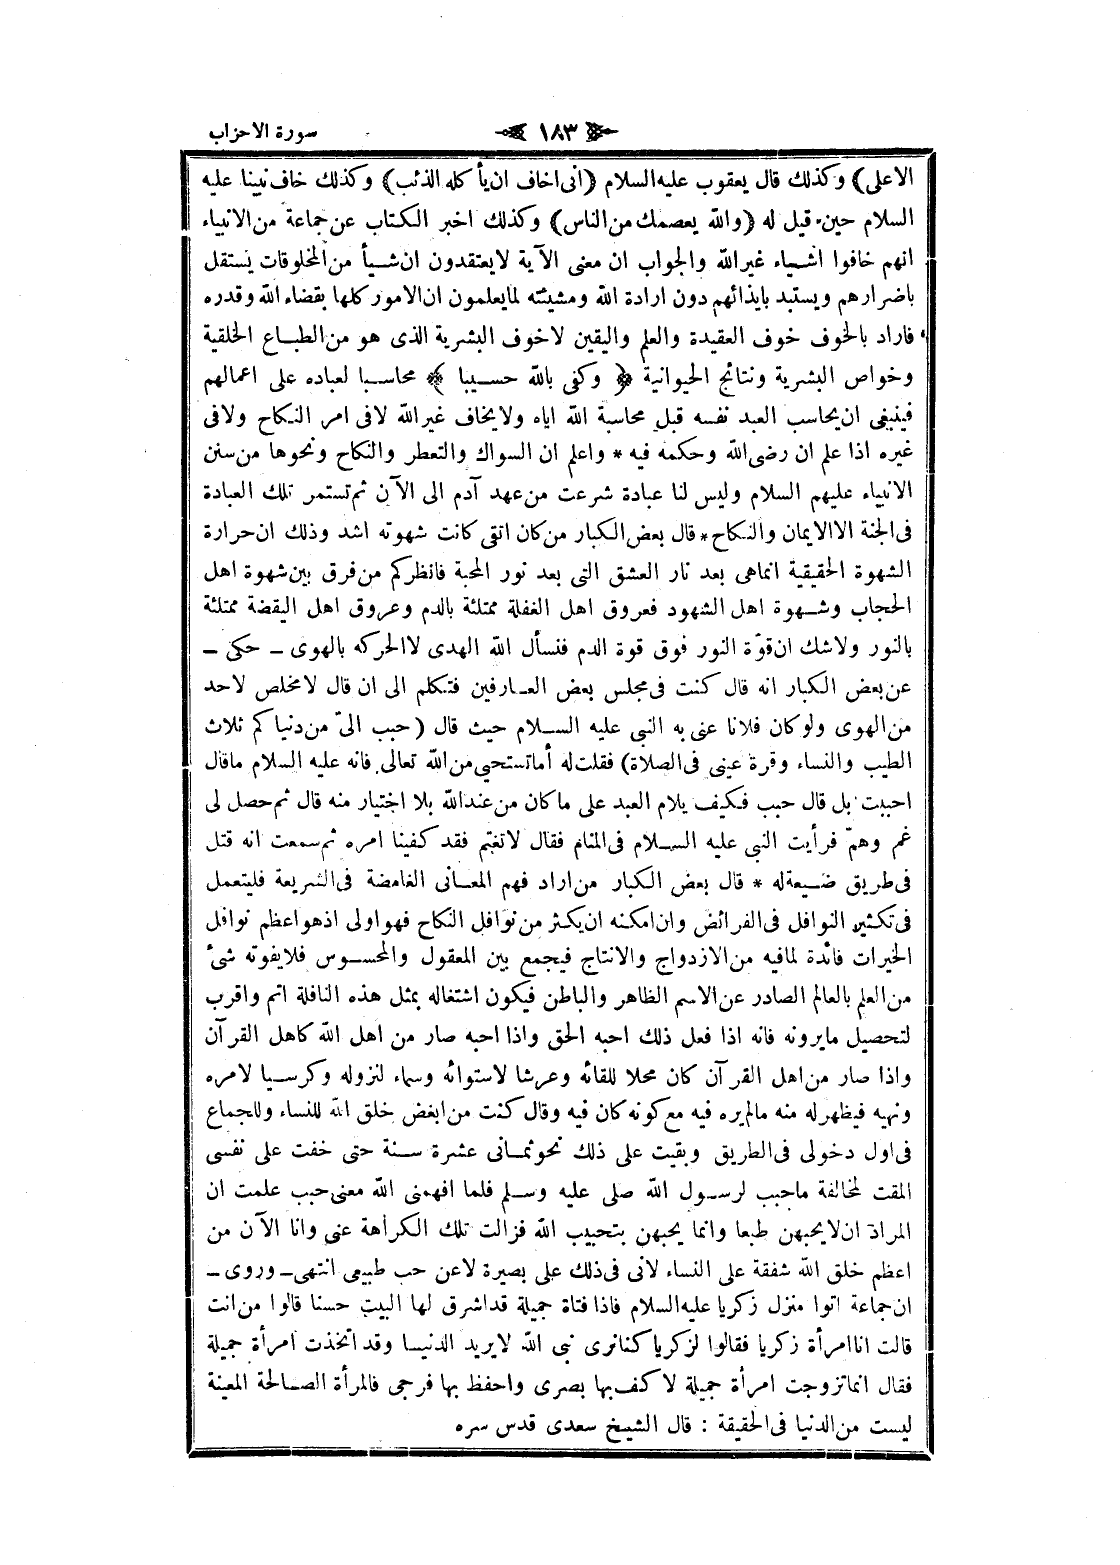 سورة الاحزاب ١٨٣
الاعلى) وكذلك قال يعقوب عليه السلام (انى اخاف ان يأكله الذئب) وكذلك خاف نبينا عليه
السلام حين قيل له (والله يعصمك من الناس) وكذلك اخبر الكتاب عن جماعة من الانبياء
انهم خافوا اشياء غير الله والجواب ان معنى الآية لايعتقدون ان شيأ من المخلوقات يستقل
باضرارهم ويستبد بايذائهم دون ارادة الله ومشيئته لمايعلمون ان الامور كلها بقضاء الله وقدره
فاراد بالخوف خوف العقيدة والعلم واليقين لاخوف البشرية الذى هو من الطباع الخلقية
وخواص البشرية ونتائج الحيوانية ﴿ وكفى بالله حسيبا ﴾ محاسبا لعباده على اعمالهم
فينبغى ان يحاسب العبد نفسه قبل محاسبة الله اياه ولايخاف غير الله لافى امر النكاح ولافى
غيره اذا علم ان رضى الله وحكمه فيه * واعلم ان السواك والتعطر والنكاح ونحوها من سنن
الانبياء عليهم السلام وليس لنا عبادة شرعت من عهد آدم الى الآن ثم تستمر تلك العبادة
فى الجنة الا الايمان والنكاح * قال بعض الكبار من كان اتقى كانت شهوته اشد وذلك ان حرارة
الشهوة الحقيقية انماهى بعد نار العشق التى بعد نور المحبة فانظركم من فرق بين شهوة اهل
الحجاب وشهوة اهل الشهود فعروق اهل الغفلة ممتلئة بالدم وعروق اهل اليقضة ممتلئة
بالنور ولاشك ان قوّة النور فوق قوة الدم فنسأل الله الهدى لاالحركه بالهوى ـ حكى ـ
عن بعض الكبار انه قال كنت فى مجلس بعض العارفين فتكلم الى ان قال لامخلص لاحد
من الهوى ولو كان فلانا عنى به النبى عليه السلام حيث قال (حبب الىّ من دنياكم ثلاث
الطيب والنساء وقرة عينى فى الصلاة) فقلت له أماتستحيى من الله تعالى فانه عليه السلام ماقال
احببت بل قال حبب فكيف يلام العبد على ماكان من عند الله بلا اختيار منه قال ثم حصل لى
غم وهمّ فرأيت النبى عليه السلام فى المنام فقال لاتغتم فقد كفينا امره ثم سمعت انه قتل
فى طريق ضيعة له * قال بعض الكبار من اراد فهم المعانى الغامضة فى الشريعة فليتعمل
فى تكثير النوافل فى الفرائض وان امكنه ان يكثر من نوافل النكاح فهو اولى اذهو اعظم نوافل
الخيرات فائدة لمافيه من الازدواج والانتاج فيجمع بين المعقول والمحسوس فلايفوته شئ
من العلم بالعالم الصادر عن الاسم الظاهر والباطن فيكون اشتغاله بمثل هذه النافلة اتم واقرب
لتحصيل مايرونه فانه اذا فعل ذلك احبه الحق واذا احبه صار من اهل الله كاهل القرآن
واذا صار من اهل القرآن كان محلا للقائه وعرشا لاستوائه وسماء لنزوله وكرسيا لامره
ونهيه فيظهرله منه مالم يره فيه مع كونه كان فيه وقال كنت من ابغض خلق الله للنساء وللجماع
فى اول دخولى فى الطريق وبقيت على ذلك نحو ثمانى عشرة سنة حتى خفت على نفسى
المقت لمخالفة ماحبب لرسول الله صلى عليه وسلم فلما افهمنى الله معنى حبب علمت ان
المراد ان لايحبهن طبعا وانما يحبهن بتحبيب الله فزالت تلك الكراهة عنى وانا الآن من
اعظم خلق الله شفقة على النساء لانى فى ذلك على بصيرة لاعن حب طبيعى انتهى ـ وروى ـ
ان جماعة اتوا منزل زكريا عليه السلام فاذا فتاة جميلة قداشرق لها البيت حسنا قالوا من انت
قالت انا امرأة زكريا فقالوا لزكريا كنانرى نبى الله لايريد الدنيا وقد اتخذت امرأة جميلة
فقال انماتزوجت امرأة جميلة لاكف بها بصرى واحفظ بها فرجى فالمرأة الصالحة المعينة
ليست من الدنيا فى الحقيقة : قال الشيخ سعدى قدس سره